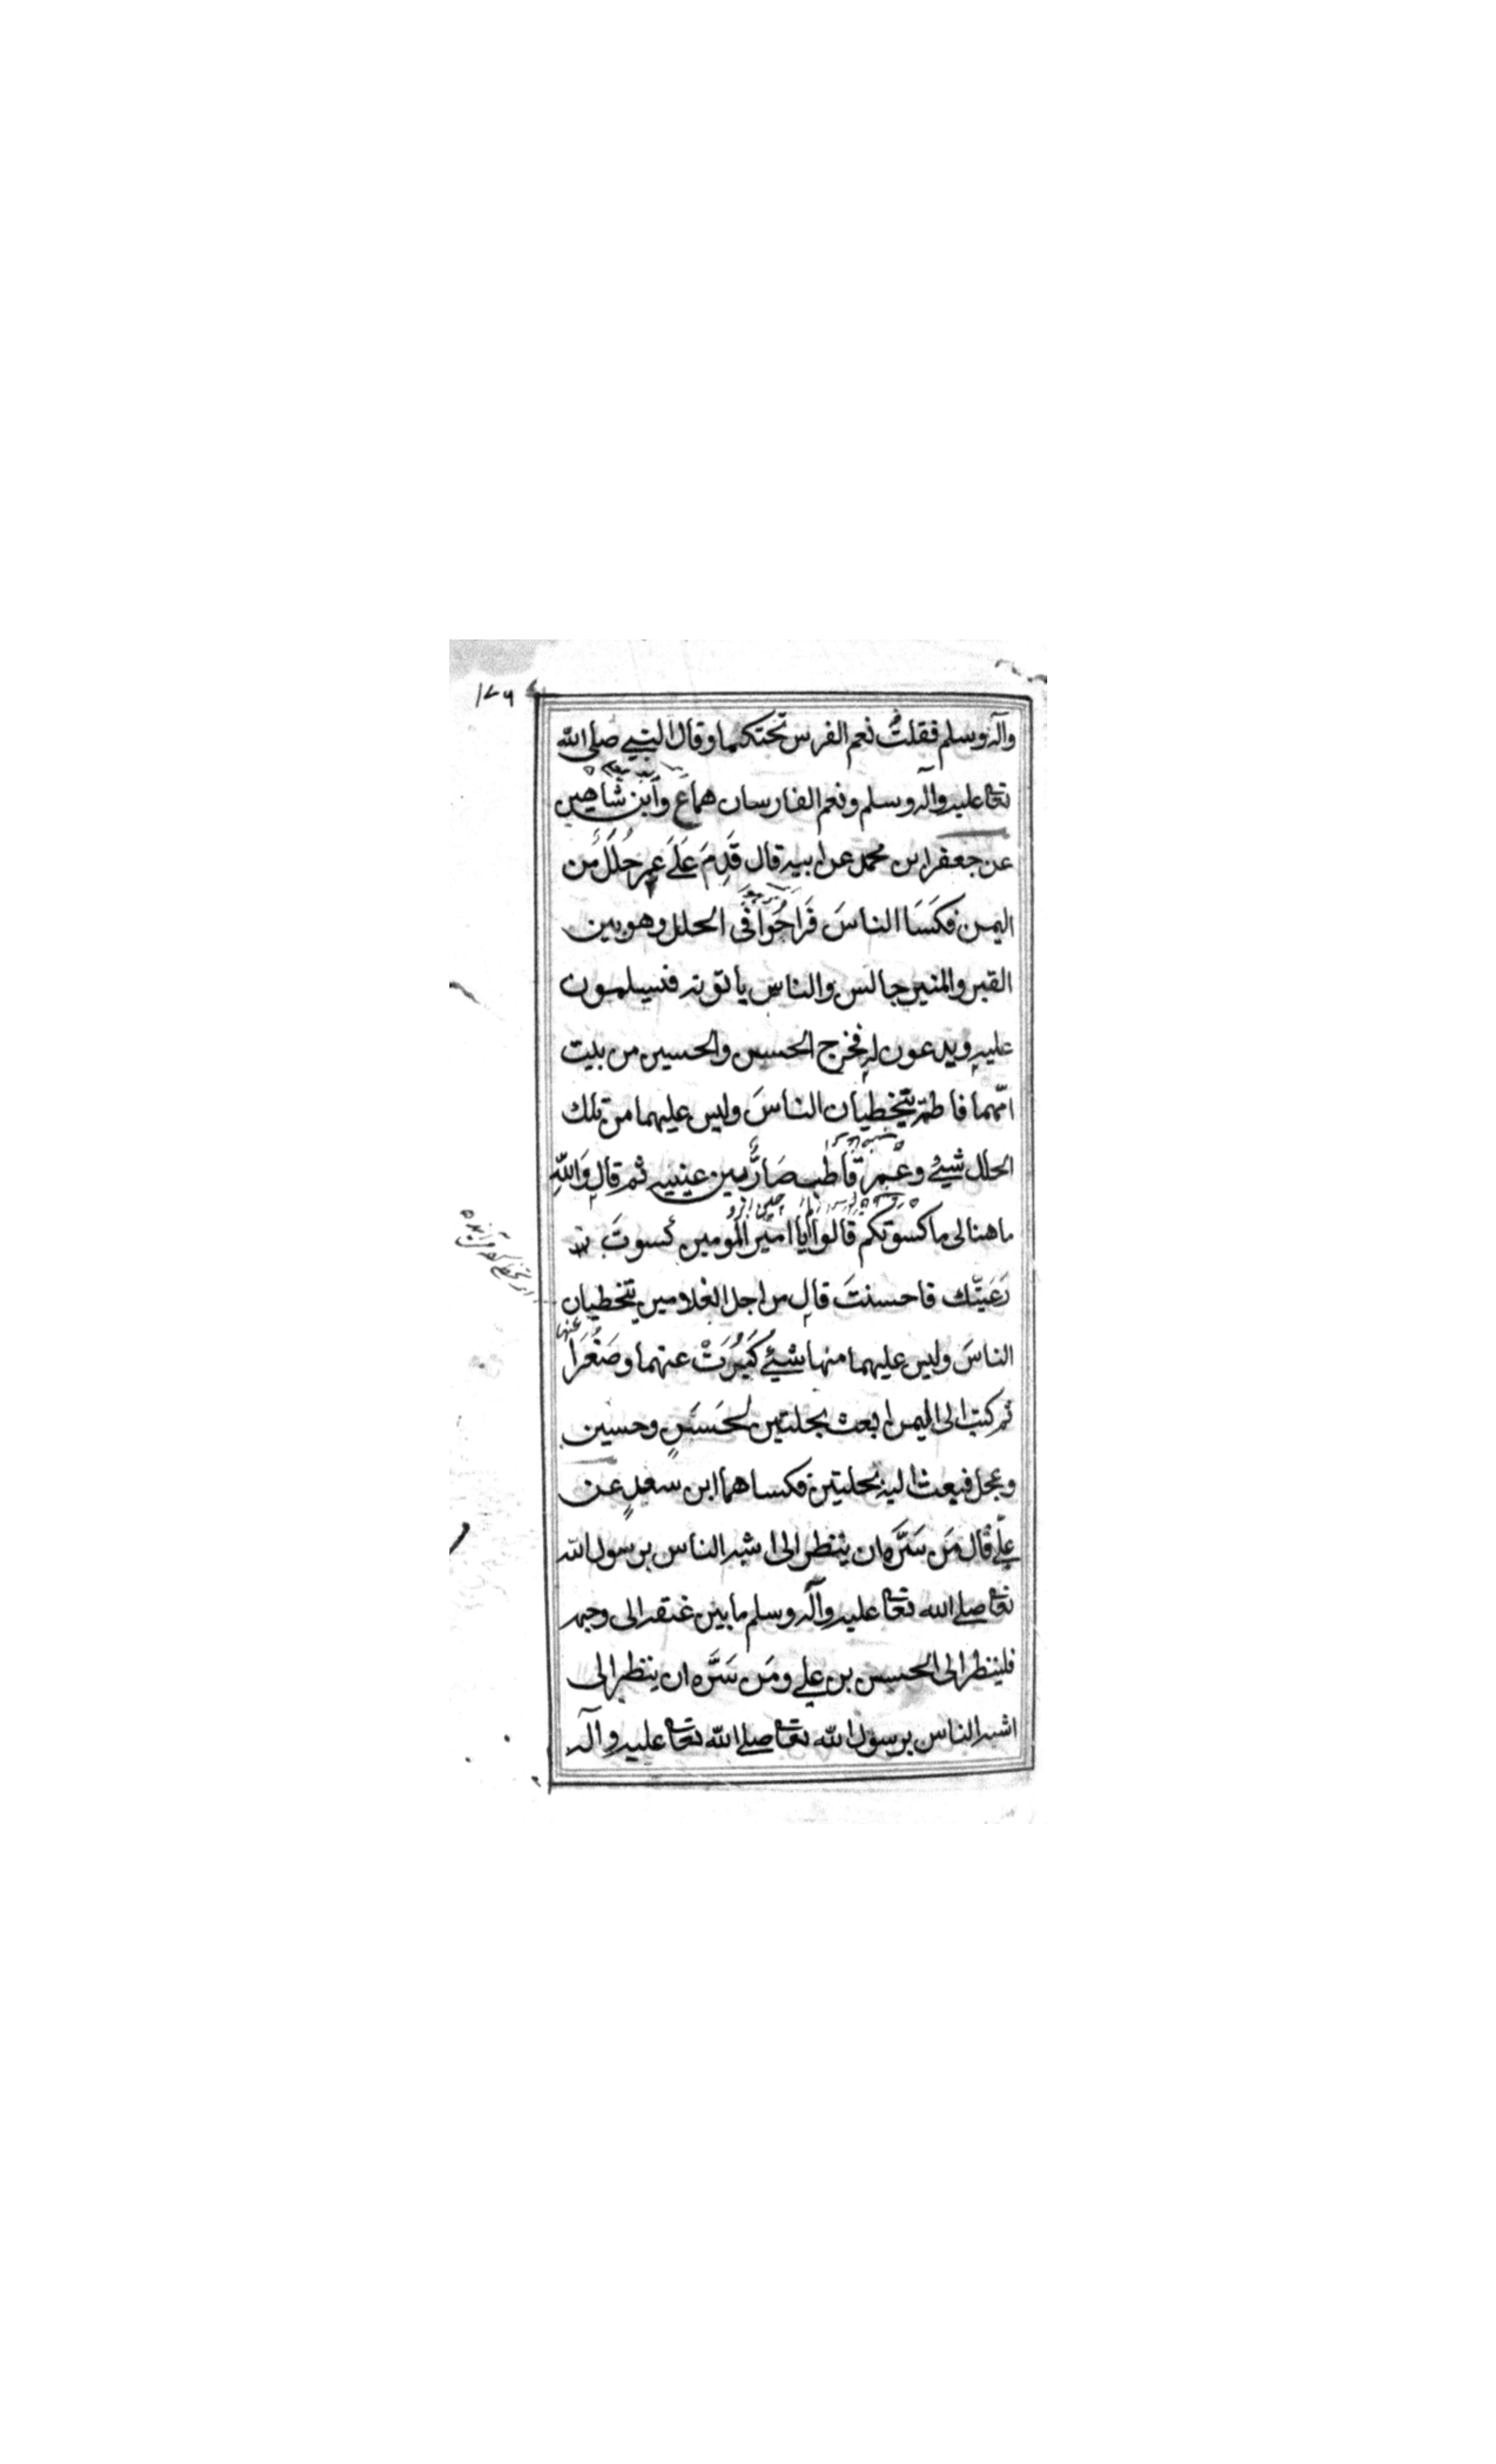 ١٧٩
وآله وسلم فقلتُ نعم الفرس تحتكما وقال النبيے صلے الله
تعا عليه وآله وسلم ونعم الفارسان هما ع وابن شاهين
عن جعفر ابن محمد عن ابيه قال قَدِمَ عَلَے عمر حُلَلٌ مِن
اليمن فكَسَا الناسَ فَرَاحُوا فى الحلل وهو بين
القبر والمنبر جالس والناس ياتونه فيسلمون
عليه ويدعون له فخرج الحسن والحسين من بيت
امّهما فاطمة يتخطيان الناسَ وليس عليهما من تلك
الحلل شيئ وعمر قاطب صَارٌّ بين عينيه ثم قال وَاللهِ
ما هنالى ما كسوتكم قالوا يا امير المومين كسوتَ
رَعَيتّك فاحسنتَ قال من اجل الغلامين يتخطيان
الناسَ وليس عليهما منها شيئ كَبُرَتْ عنهما وصَغُرَا
عنها
ثم كتب الى اليمن ابعث بحلتين لحَسَنٍ وحسين
وعجل فبعث اليه بحليتين فكساهما ابن سعدٍ عن
علےّ قال مَن سَرَّه ان ينظر الى اشبه الناس برسول الله
تعا صلے الله تعا عليه وآله وسلم ما بين عنقه الى وجهه
فلينظر الى الحسن بن علے ومَن سَرَّه ان ينظر الى
اشبه الناس برسول الله تعا صلے الله تعا عليه وآله